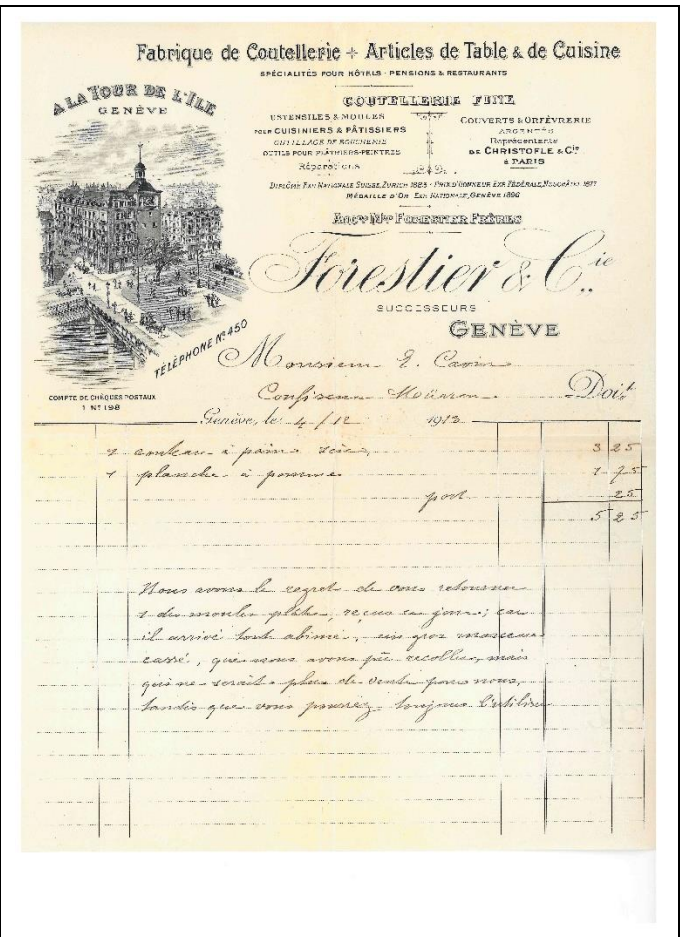 Fabrique de Coutellerie + Articles de Table & de Cuisine
SPÉCIALITÉS POUR HÔTELS - PENSIONS & RESTAURANTS
A LA TOUR DE L'ILE
GENÈVE
COUTELLERIE FINE
USTENSILES & MOULES
POUR CUISINIERS & PÂTISSIERS
OUTILLAGE DE BOUCHERIE
OUTILS POUR PLÂTRIERS-PEINTRES
Réparations
COUVERTS & ORFÈVRERIE
ARGENTÉS
Représentants
DE CHRISTOFLE & Cie
à PARIS
DIPLÔME EXP. NATIONALE SUISSE, ZURICH 1883 - PRIX D'HONNEUR EXP. FÉDÉRALE, NEUCHÂTEL 1887
MÉDAILLE D'OR EXP. NATIONALE, GENÈVE 1896
ANCne Mson FORESTIER FRÈRES
Forestier & Cie
SUCCESSEURS
GENÈVE
TÉLÉPHONE No 450
Monsieur E.
COMPTE DE CHÈQUES POSTAUX
1 No 198
Confiseur Doit
Genève, le 4/12 1913
couteau à pain scie, 3 25
1 planche à 1 75
port 25
5 25
Nous avons le regret de vous retourner
1 des moules reçus ce jour; car
il arrive tout abimé, un gros morceau
cassé, que nous avons pu recoller, mais
qui ne serait plus de vente pour nous,
tandis que vous pourrez toujours l'utiliser